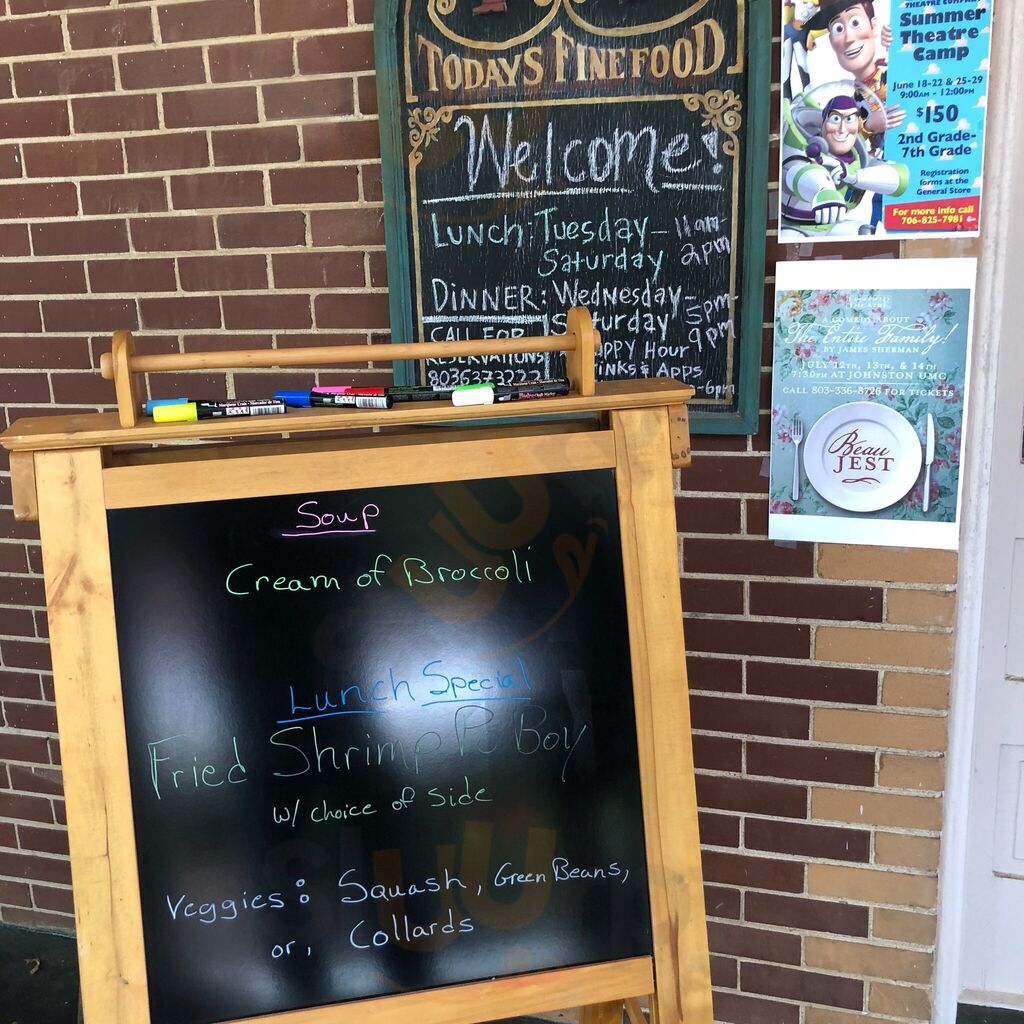 TODAYS FINE FOOD
Welcome!
LUNCH: Tuesday- 11am-
Saturday 2pm
DINNER: Wednesday- 5pm-
Saturday 9pm
CALL FOR
RESERVATIONS
8036373222
Happy Hour
Drinks & Apps
-6pm
THEATRE COMPANY
Summer
Theatre
Camp
June 18-22 & 25-29
9:00AM - 12:00PM
$150
2nd Grade-
7th Grade
Registration
forms at the
General Store
For more info call
706-825-7981
A COMEDY ABOUT
The Entire Family!
BY JAMES SHERMAN
JULY 12TH, 13TH, & 14TH
7:30PM AT JOHNSTON UMC
CALL 803-336-8726 FOR TICKETS
Beau
JEST
Soup
Cream of Broccoli
Lunch Special
Fried Shrimp Po Boy
w/ choice of side
Veggies: Squash, Green Beans,
or, Collards